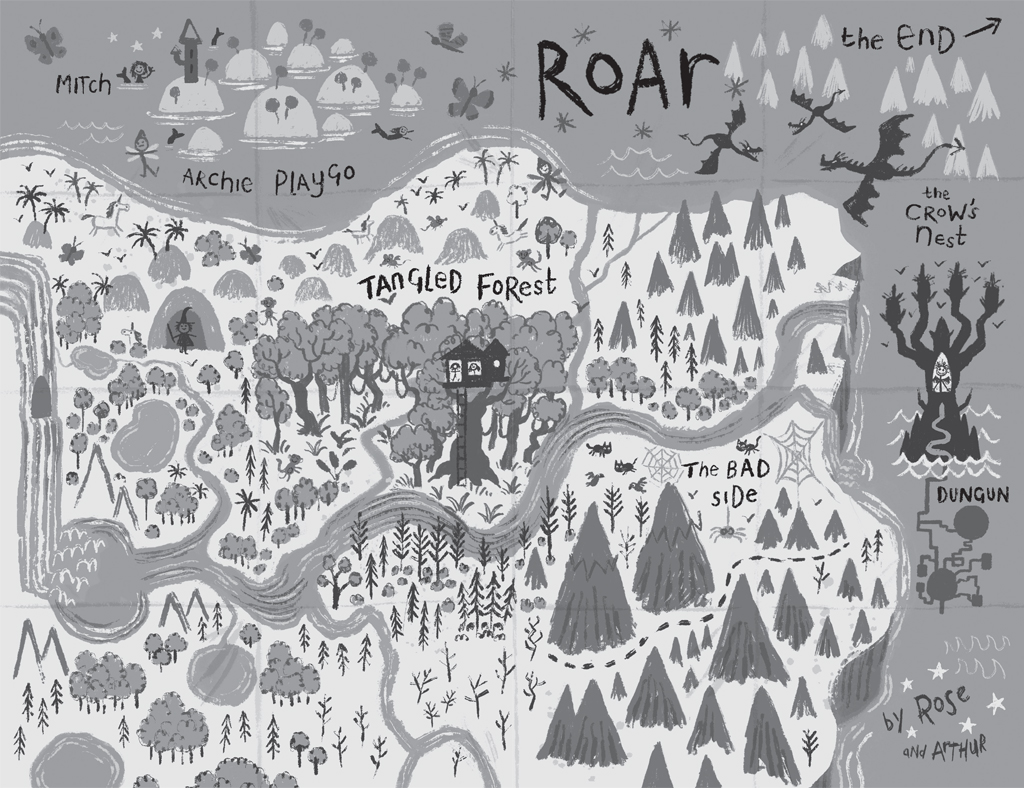 ROAr
the END
MITCH
ARCHIE PLAYGO
the
CROW'S
Nest
TANGLED FOREST
The BAD
SIDe
DUNGUN
by ROSE
and ArTHUR